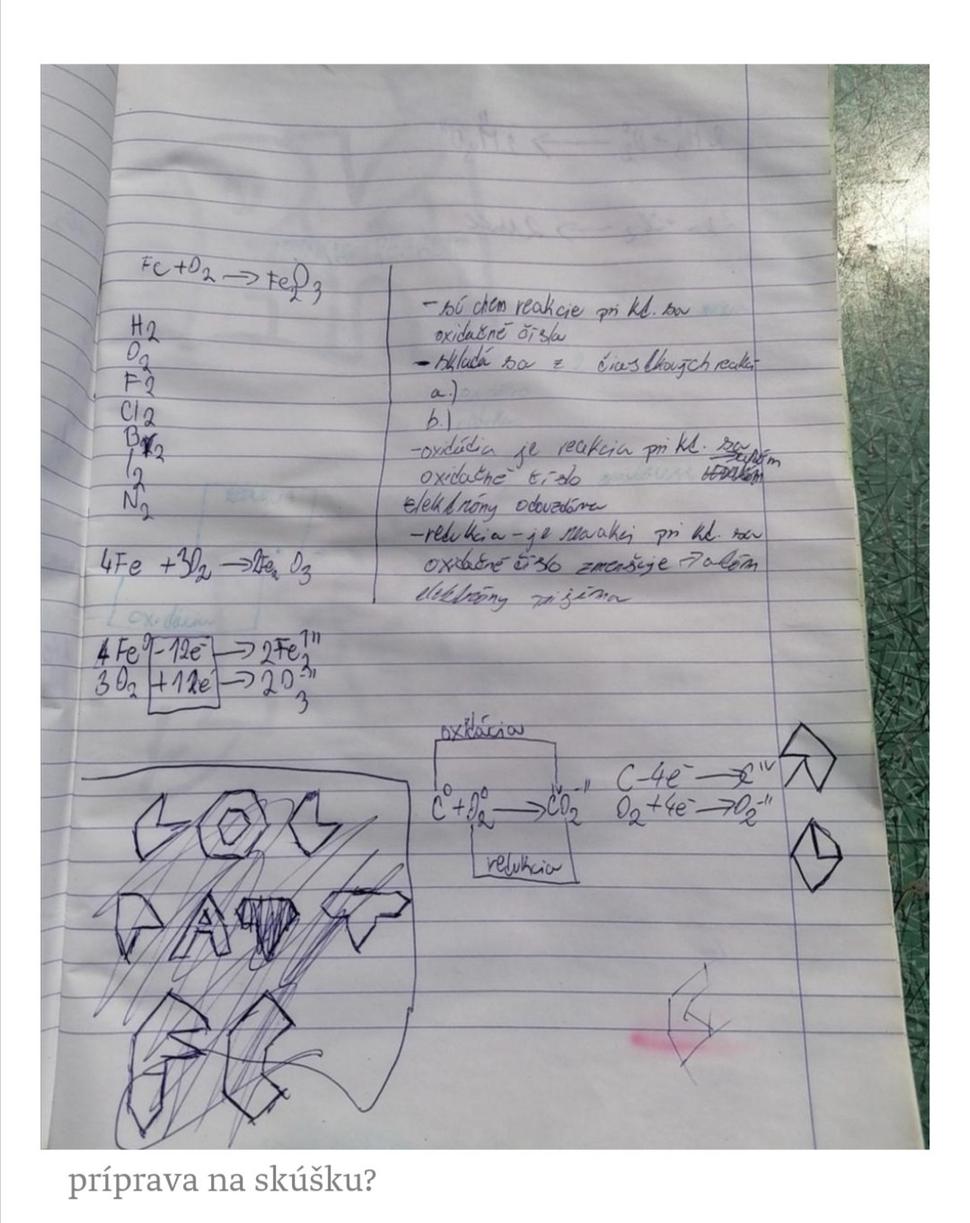 Fe + O2 → Fe2O3
H2
O2
F2
Cl2
Br2
I2
N2
4Fe + 3O2 → 2Fe2 O3
4 Fe⁰ -12e⁻ → 2Fe2ᴵᴵᴵ
3 O2 +12e⁻ → 2O3⁻ᴵᴵ
- sú chem reakcie pri kt. sa
oxidačné čísla
- skladá sa z čiastkových reakcí
a.)
b.)
-oxidácia je reakcia pri kt. sa
oxidačné číslo
elektróny odovzdáva
-redukcia - je pri kt. sa
oxidačné číslo zmenšuje → atóm
elektróny
oxidácia
C⁰ + O2⁰ → CᴵⱽO2⁻ᴵᴵ
redukcia
C -4e⁻ → Cᴵⱽ
O2 +4e⁻ → O2⁻ᴵᴵ
príprava na skúšku?